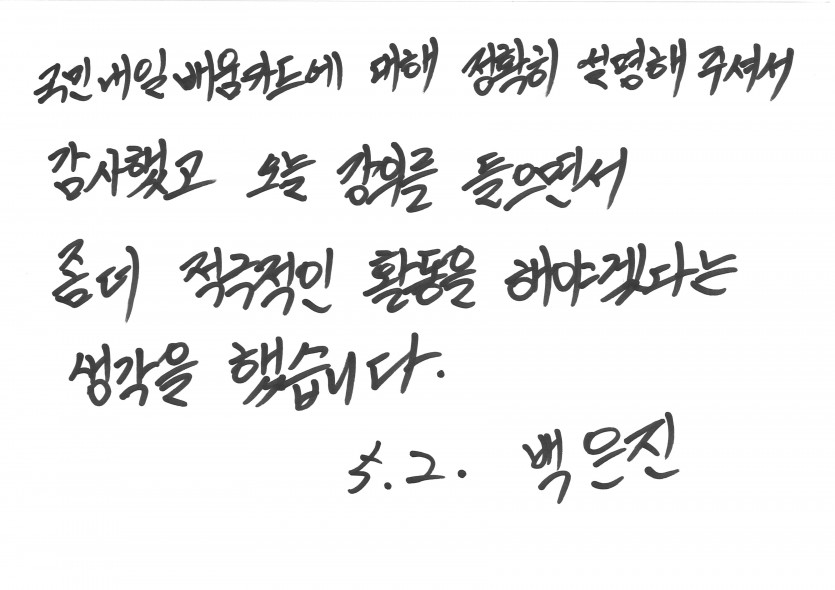 국민내일배움카드에 대해 정확히 설명해 주셔서
감사했고 오늘 강의를 들으면서
좀더 적극적인 활동을 해야겠다는
생각을 했습니다.
5.2. 백은진